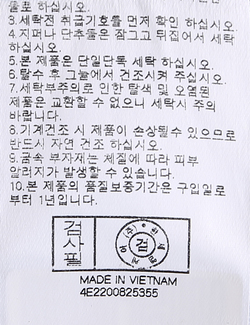 물표 하십시오.
3.세탁전 취급기호를 먼저 확인 하십시오.
4.지퍼나 단추물은 잠그고 뒤집어서 세탁
하십시오.
5.본 제품은 단일단독 세탁 하십시오.
6.탈수 후 그늘에서 건조시켜 주십시오.
7.세탁부주의로 인한 탈색 및 오염된
제품은 교환할 수 없으니 세탁시 주의
바랍니다.
8.기계건조 시 제품이 손상될수 있으므로
반드시 자연 건조 하십시오.
9.금속 부자재는 체질에 따라 피부
알러지가 발생할 수 있습니다.
10.본 제품의 품질보증기간은 구입일로
부터 1년입니다.
검사필
검
MADE IN VIETNAM
4E2200825355